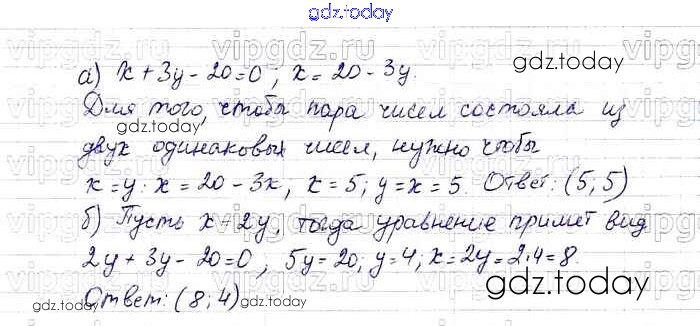 gdz.today
vipgdz.ru vipgdz.ru vipgdz.ru
gdz.today
а) x + 3y - 20 = 0 ; x = 20 - 3y.
Для того, чтобы пара чисел состояла из
gdz.today
двух одинаковых чисел, нужно чтобы
x = y : x = 20 - 3x, x = 5 ; y = x = 5. Ответ: (5; 5)
б) Пусть x = 2y, тогда уравнение примет вид
gdz.today
2y + 3y - 20 = 0 ; 5y = 20 ; y = 4 ; x = 2y = 2·4 = 8.
gdz.today
Ответ: (8; 4)
gdz.today